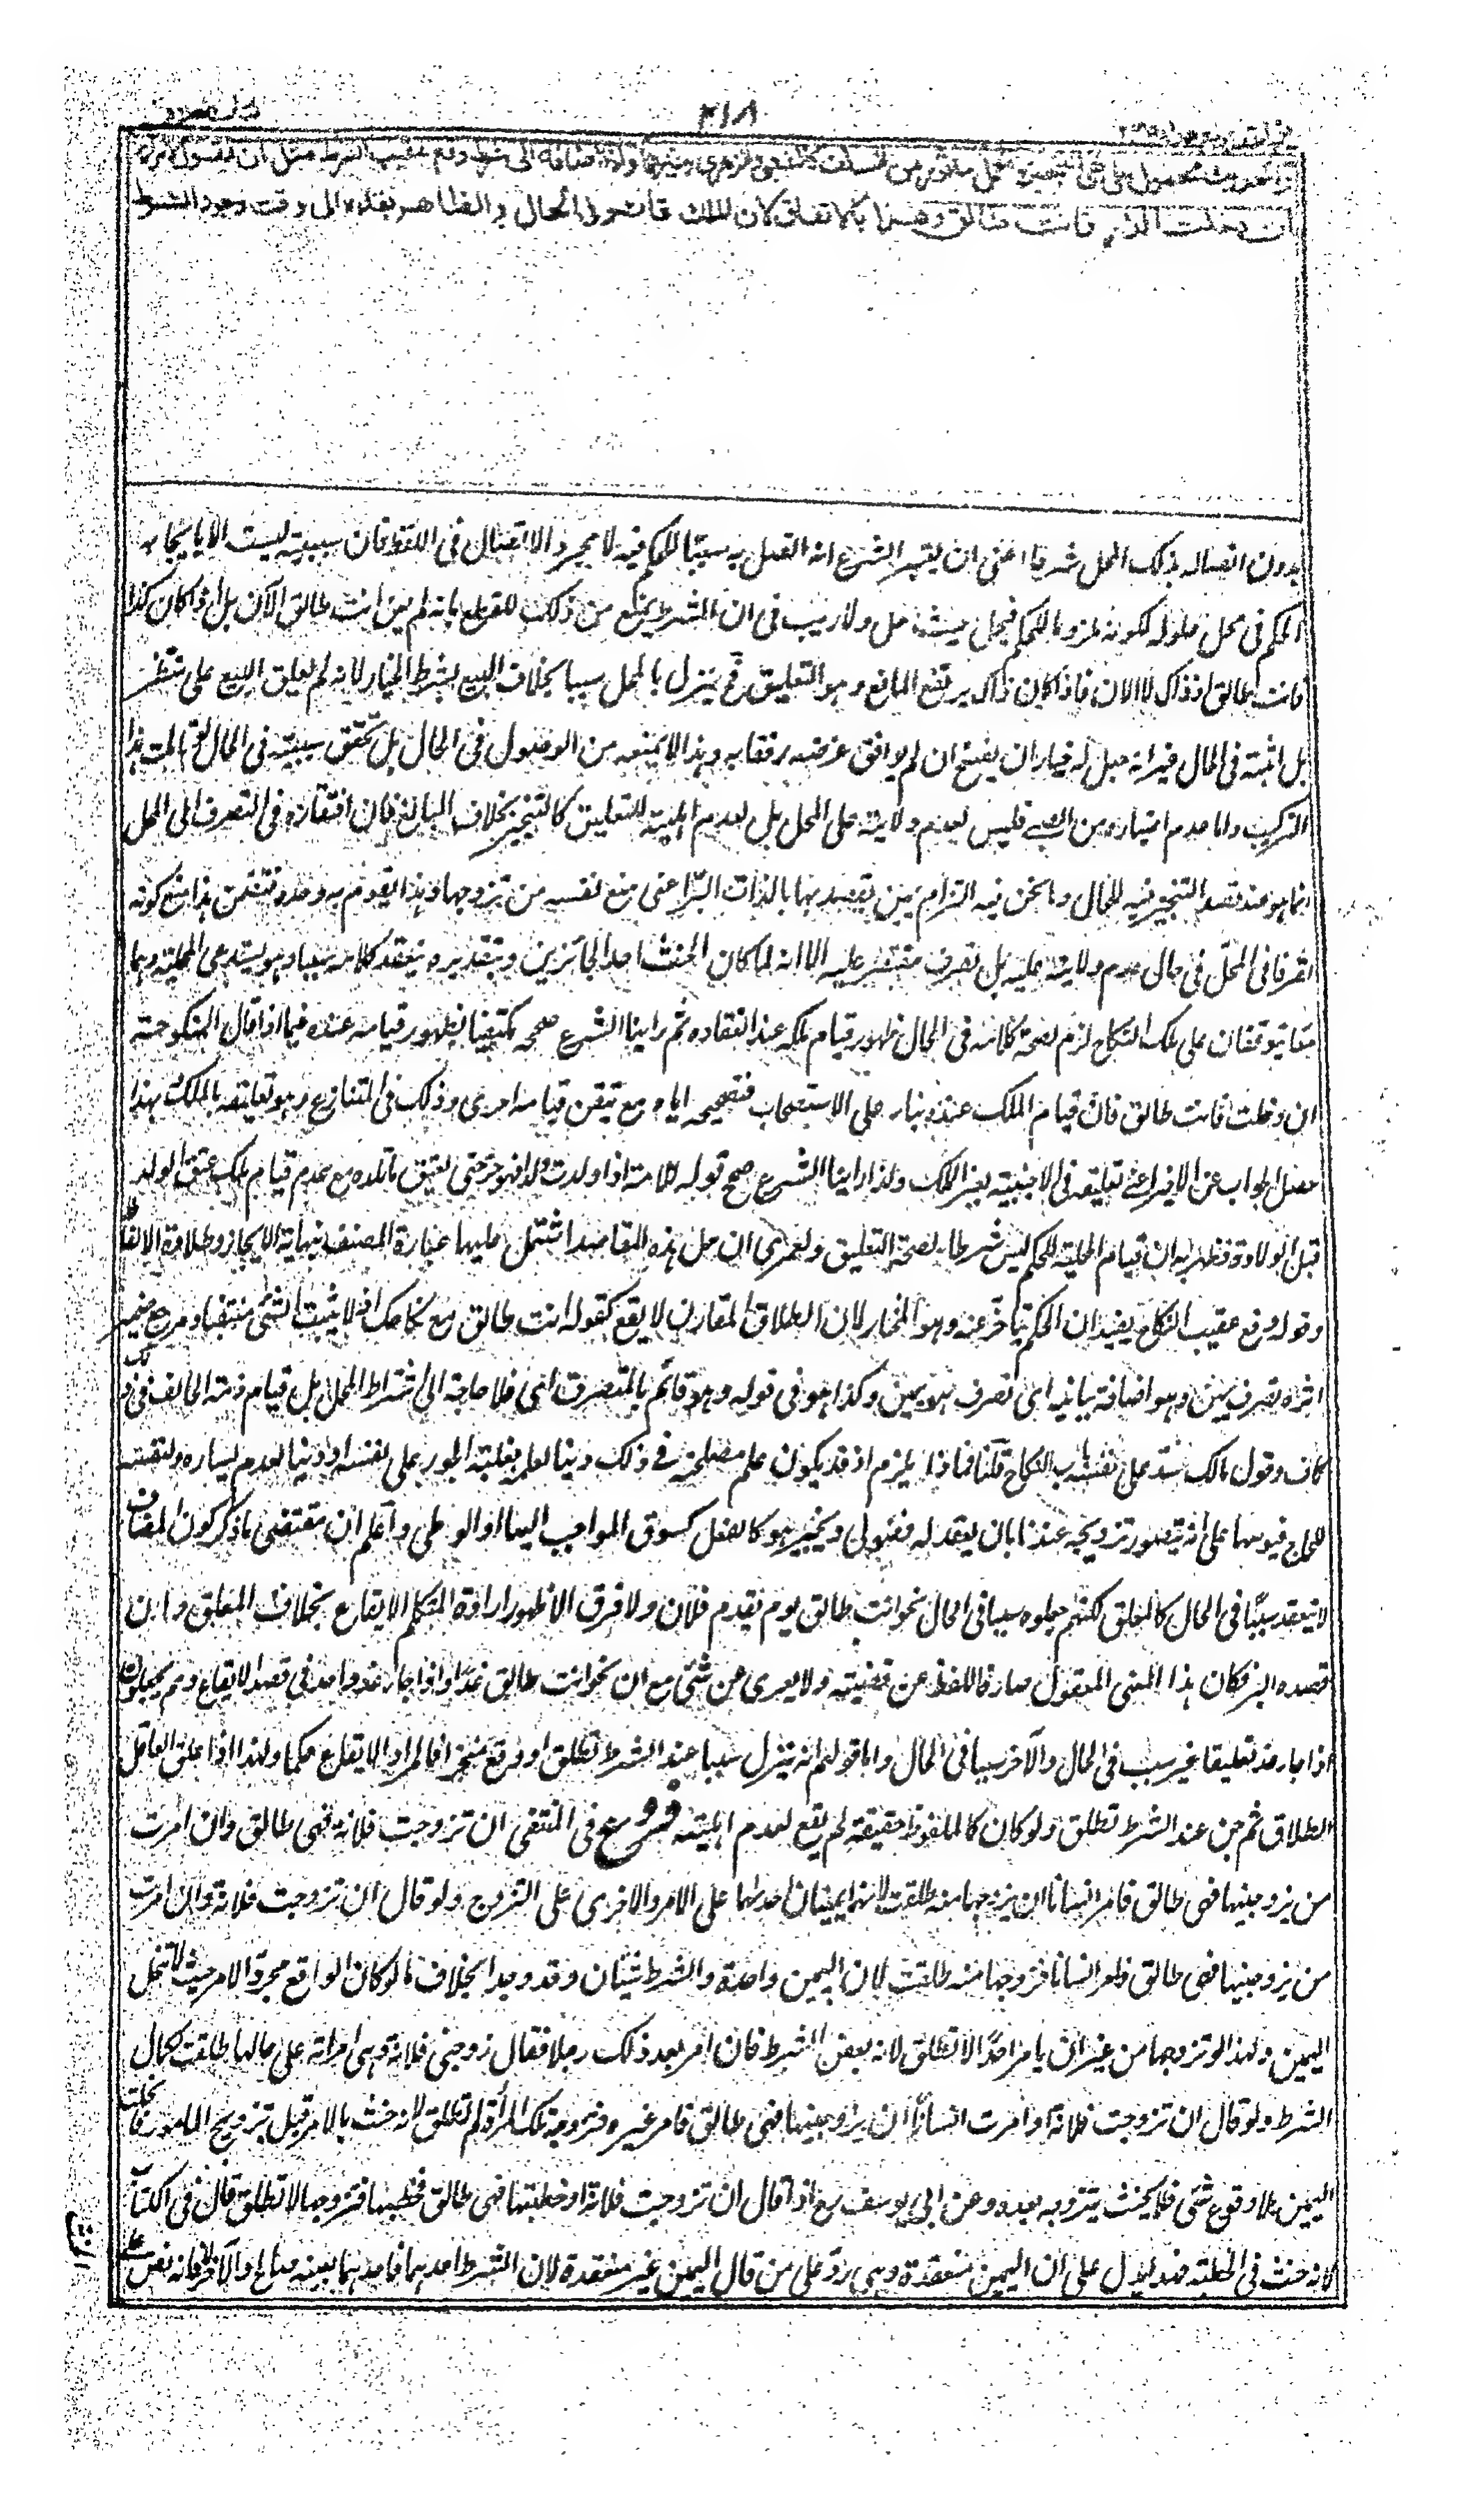 ٣١٨
والحديث محمول على نفي التنجيز والحمل مأثور عن السلف كالشعبي والزهري وغيرهما وإذا أضافه إلى شرط وقع عقيب الشرط مثل أن يقول لامرأته
إن دخلت الدار فأنت طالق وهذا بالاتفاق لأن الملك قائم في الحال والظاهر بقاؤه إلى وقت وجود الشرط
بدون اتصاله بذلك المحل شرعا اعنى ان يعتبر الشرع انه اتصل به سببا للحكم فيه لا مجرد الاتصال فى اللفظ فان سببيته ليست الا بايجابه
الحكم فى محل حلوله لكونه ملزوما للحكم فيحل حيث حل ولا ريب فى ان الشرط يمنع من ذلك للقطع بانه لم يبن انت طالق الآن بل اذا كان كذا
فانت طالق اذ ذاك لا الآن فاذا كان ذاك يرتفع المانع وهو التعليق فح ينزل بالمحل سببا بخلاف البيع بشرط الخيار لانه لم يعلق البيع على منتظر
بل اثبته فى الحال غير انه جعل له خيار ان يفسخ ان لم يوافق غرضه رفقا به وهذا لا يمنعه من الوصول فى الحال بل تحقق سببيته فى الحال لغة البت هذا
التركيب واما عدم اعتباره من الصبى فليس لعدم ولايته على المحل بل لعدم اهليته للتعليق كالتنجيز بخلاف البالغ فان افتقاره فى التصرف الى المحل
انما هو عند قصد التنجيز فيه للحال وما نحن فيه التزام يمين يقصد بها بالذات البر اعنى منع نفسه من تزوجها وهذا يقوم به وحده فتضمن هذا منع كونه
تصرفا فى المحل فى حال عدم ولايته عليه بل تصرف مقتصر عليه الا انه لما كان الحنث احد الجائزين وبتقديره ينعقد كلامه سببا وهو يستدعى المحلية وهما
معا يتوقفان على ملك النكاح لزم لصحة كلامه فى الحال ظهور قيام ملكه عند انعقاده ثم راينا الشرع صححه مكتفيا بظهور قيامه عنده فيما اذا قال لمنكوحته
ان دخلت فانت طالق فان قيام الملك عنده بناء على الاستصحاب فتصحيحه اياه مع تيقن قيامه احرى وذلك فى المتنازع وهو تعليقه بالملك بهذا
حصل الجواب عن الاخير اعنى تعليقه فى الاجنبية بغير الملك ولذا راينا الشرع صحح قوله للامة اذا ولدت ولدا فهو حر حتى يعتق ما تلده مع عدم قيام ملك عتق الولد
قبل الولادة فظهر به ان قيام المحلية للحكم ليس شرطا لصحة التعليق ولعمرى ان حل هذه المقاصد اشتمل عليها عبارة المصنف بنهاية الايجاز وطلاوة الالفاظ
وقوله وقع عقيب النكاح يفيد ان الحكم يتاخر عنه وهو المختار لان الطلاق المقارن لا يقع كقوله انت طالق مع نكاحك اذ لا يثبت الشئ منتفيا ومرجع ضمير
اثره تصرف يمين وهو اضافة بيانية اى تصرف هو يمين وكذا هو فى قوله وهو قائم بالمتصرف اى فلا حاجة الى اشتراط المحل بل قيام ذمة الحالف فى ذلك
كاف وقول مالك سد على نفسه باب النكاح قلنا فماذا يلزم اذ قد يكون علم مصلحة فى ذلك دينا لعلمه بغلبة الجور على نفسه او دنيا لعدم يساره ولنفسه
للجاج فيوسها على انه يتصور تزويجه عندنا بان يعقد له فضولى ويجيز هو كالفعل كسوق المواجب اليها او الوطى واعلم ان مقتضى ما ذكر كون المضاف
لا ينعقد سببا فى الحال كالمعلق لكنهم جعلوه سببا فى الحال نحو انت طالق يوم يقدم فلان ولا فرق الا ظهور ارادة المتكلم الايقاع بخلاف المعلق وان
قصده البر فكان هذا المعنى المعقول صارفا اللفظ عن قضيته ولا يعرى عن شئ مع ان نحو انت طالق غدا او اذا جاء غد واحد فى قصد الايقاع وهم يجعلون
اذا جاء غد تعليقا غير سبب فى الحال والآخر سببا فى الحال واما قولهم انه ينزل سببا عند الشرط تطلق او وقع منجزا فالمراد الايقاع حكما ولهذا اذا علق العاقل
الطلاق ثم جن عند الشرط تطلق ولو كان كالملفوظ حقيقة لم يقع لعدم اهليته فروع فى المنتقى ان تزوجت فلانة فهى طالق وان امرت
من يزوجنيها فهى طالق فامر انسانا ان يزوجها منه طلقت لانهما يمينان احدهما على الامر والاخرى على التزوج ولو قال ان تزوجت فلانة وان امرت
من يزوجنيها فهى طالق فامر انسانا فزوجها منه طلقت لان اليمين واحدة والشرط شيئان وقد وجدا بخلاف ما لو كان الواقع مجرد الامر حيث لا تنحل
اليمين ولهذا لو تزوجها من غير ان يامر احدا لا تطلق لانه بعض الشرط فان امر بعد ذلك رجلا فقال زوجنى فلانة وهى امراته على حالها طلقت لكمال
الشرط ولو قال ان تزوجت فلانة او امرت انسانا ان يزوجنيها فهى طالق فامر غيره فزوجه تلك المرأة لم تطلق لانه حنث بالامر قبل تزويج المامور فانحلت
اليمين بلا وقوع شئ فلا يحنث بتزوجه بعده وعن ابى يوسف رح اذا قال ان تزوجت فلانة او خطبتها فهى طالق فخطبها فتزوجها لا تطلق قال فى الكتاب
لانه حنث فى الخطبة فهذا يدل على ان اليمين منعقدة وهى رد على من قال اليمين غير منعقدة لان الشرط احدهما فاحدهما بعينه صالح والآخر لا فانه نص على